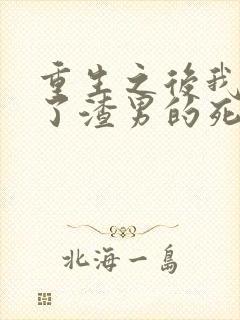 重生之后我
了渣男的死
北海一岛